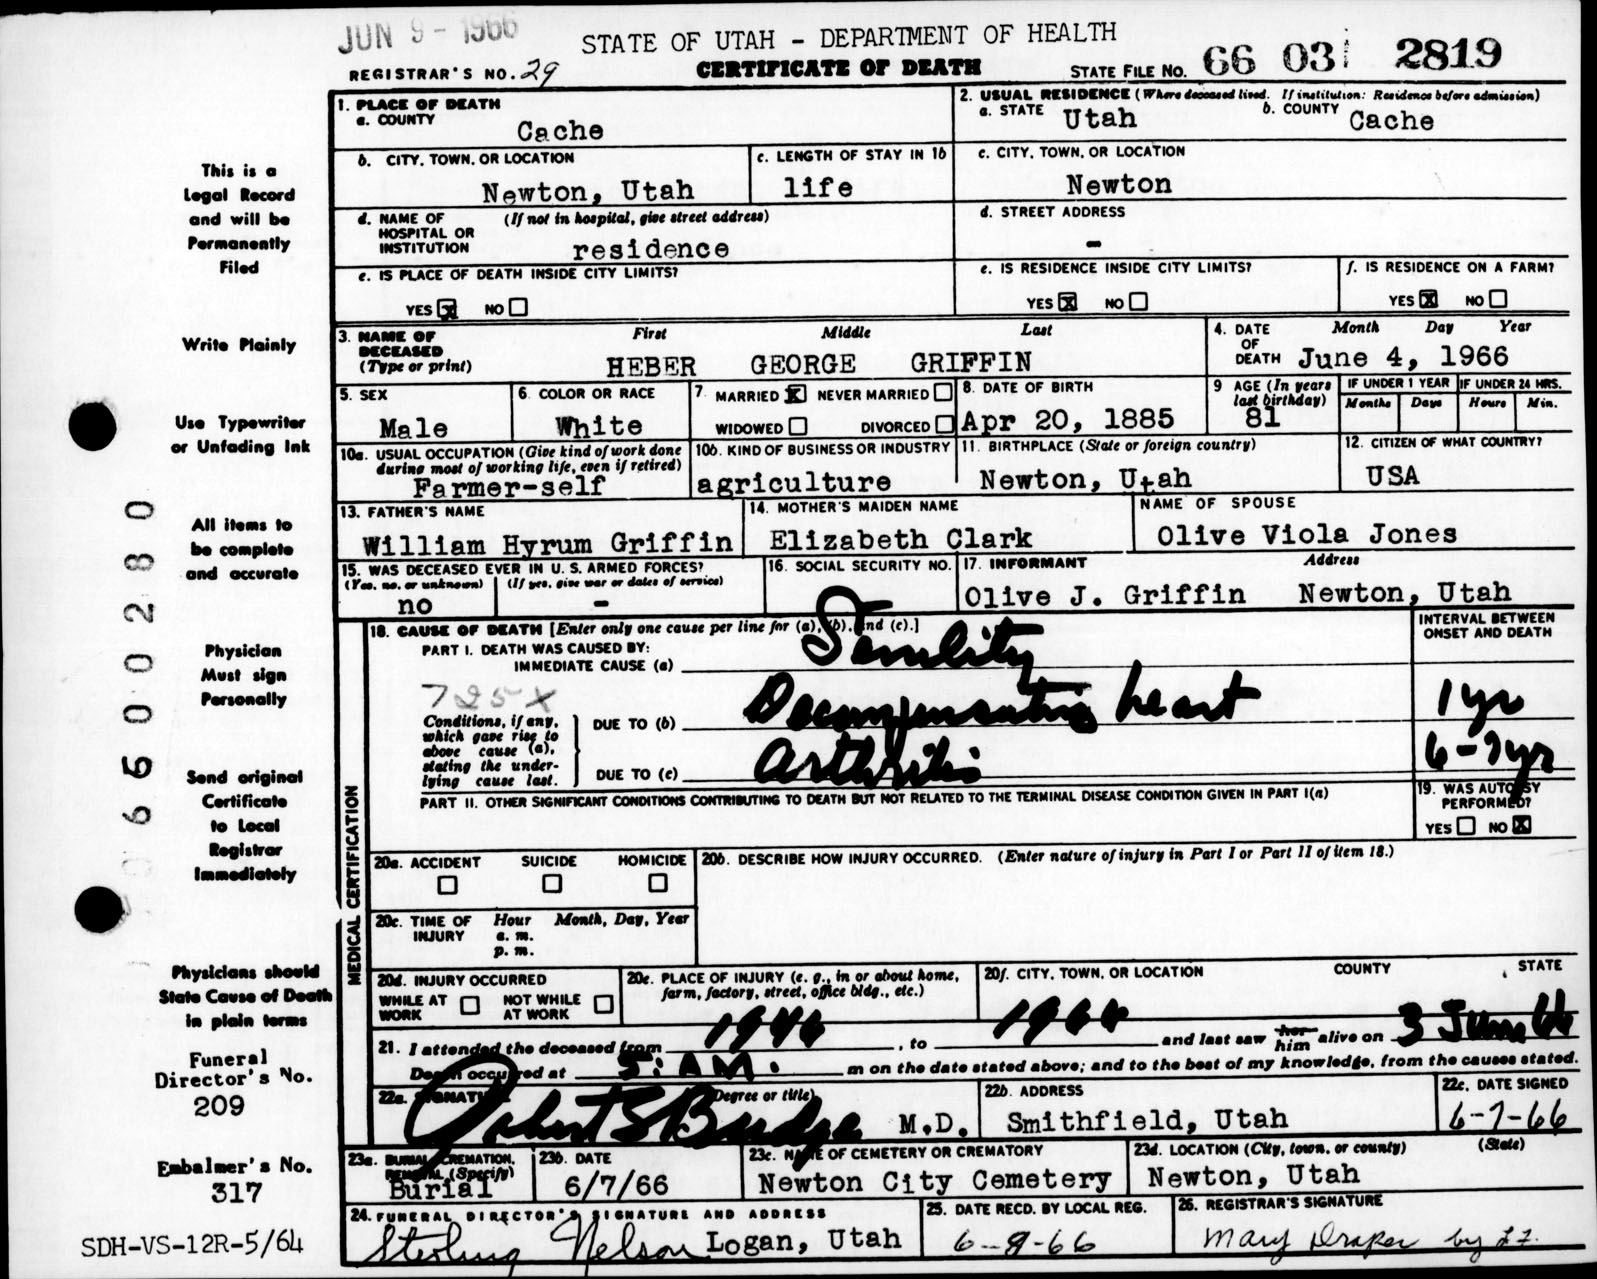 JUN 9 - 1966
STATE OF UTAH - DEPARTMENT OF HEALTH
REGISTRAR'S NO. 29
CERTIFICATE OF DEATH
STATE FILE NO. 66 03 2819
This is a
Legal Record
and will be
Permanently
Filed
Write Plainly
Use Typewriter
or Unfading Ink
All items to
be complete
and accurate
Physician
Must sign
Personally
Send original
Certificate
to Local
Registrar
Immediately
Physicians should
State Cause of Death
in plain terms
Funeral
Director's No.
209
Embalmer's No.
317
SDH-VS-12R-5/64
1. PLACE OF DEATH
a. COUNTY
Cache
2. USUAL RESIDENCE (Where deceased lived. If institution: Residence before admission)
a. STATE Utah
b. COUNTY Cache
b. CITY, TOWN, OR LOCATION
Newton, Utah
c. LENGTH OF STAY IN 1b
life
c. CITY, TOWN, OR LOCATION
Newton
d. NAME OF (If not in hospital, give street address)
HOSPITAL OR
INSTITUTION
residence
d. STREET ADDRESS
-
e. IS PLACE OF DEATH INSIDE CITY LIMITS?
YES X NO
e. IS RESIDENCE INSIDE CITY LIMITS?
YES X NO
f. IS RESIDENCE ON A FARM?
YES X NO
3. NAME OF DECEASED
(Type or print)
First Middle Last
HEBER GEORGE GRIFFIN
4. DATE OF DEATH
Month Day Year
June 4, 1966
5. SEX
Male
6. COLOR OR RACE
White
7. MARRIED X NEVER MARRIED
WIDOWED DIVORCED
8. DATE OF BIRTH
Apr 20, 1885
9 AGE (In years
last birthday)
81
IF UNDER 1 YEAR
Months Days
IF UNDER 24 HRS.
Hours Min.
10a. USUAL OCCUPATION (Give kind of work done
during most of working life, even if retired)
Farmer-self
10b. KIND OF BUSINESS OR INDUSTRY
agriculture
11. BIRTHPLACE (State or foreign country)
Newton, Utah
12. CITIZEN OF WHAT COUNTRY?
USA
13. FATHER'S NAME
William Hyrum Griffin
14. MOTHER'S MAIDEN NAME
Elizabeth Clark
NAME OF SPOUSE
Olive Viola Jones
15. WAS DECEASED EVER IN U.S. ARMED FORCES?
(Yes, no, or unknown) (If yes, give war or dates of service)
no -
16. SOCIAL SECURITY NO.
17. INFORMANT Address
Olive J. Griffin Newton, Utah
MEDICAL CERTIFICATION
18. CAUSE OF DEATH [Enter only one cause per line for (a), (b), and (c).]
INTERVAL BETWEEN
ONSET AND DEATH
PART I. DEATH WAS CAUSED BY:
IMMEDIATE CAUSE (a) Senility
725X
Conditions, if any,
which gave rise to
above cause (a),
stating the under-
lying cause last.
DUE TO (b) Decompensating heart 1 yr
DUE TO (c) Arthritis 6-7 yr
PART II. OTHER SIGNIFICANT CONDITIONS CONTRIBUTING TO DEATH BUT NOT RELATED TO THE TERMINAL DISEASE CONDITION GIVEN IN PART I(a)
19. WAS AUTOPSY
PERFORMED?
YES NO X
20a. ACCIDENT SUICIDE HOMICIDE
20b. DESCRIBE HOW INJURY OCCURRED. (Enter nature of injury in Part I or Part II of item 18.)
20c. TIME OF INJURY
Hour Month, Day, Year
a. m.
p. m.
20d. INJURY OCCURRED
WHILE AT WORK NOT WHILE AT WORK
20e. PLACE OF INJURY (e. g., in or about home,
farm, factory, street, office bldg., etc.)
20f. CITY, TOWN, OR LOCATION COUNTY STATE
21. I attended the deceased from 1946, to 1966 and last saw her him alive on 3 June 66
Death occurred at 5: AM. m on the date stated above; and to the best of my knowledge, from the causes stated.
22a. SIGNATURE (Degree or title)
Robert S Budge M.D.
22b. ADDRESS
Smithfield, Utah
22c. DATE SIGNED
6-7-66
23a. BURIAL, CREMATION,
REMOVAL (Specify)
Burial
23b. DATE
6/7/66
23c. NAME OF CEMETERY OR CREMATORY
Newton City Cemetery
23d. LOCATION (City, town, or county) (State)
Newton, Utah
24. FUNERAL DIRECTOR'S SIGNATURE AND ADDRESS
Sterling Nelson Logan, Utah
25. DATE RECD. BY LOCAL REG.
6-9-66
26. REGISTRAR'S SIGNATURE
Mary Draper by